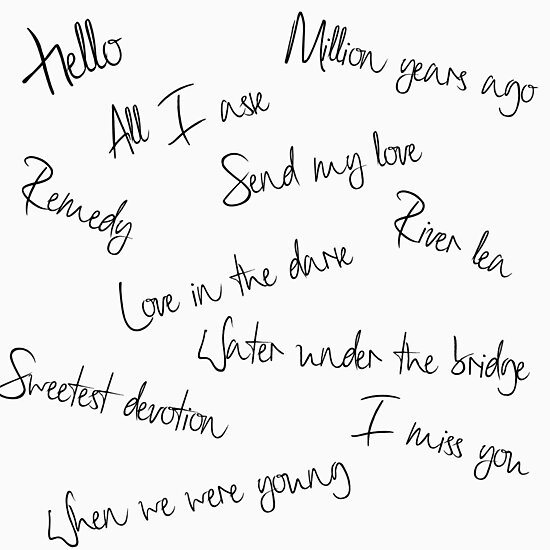 Hello
Million years ago
All I ask
Send my love
Remedy
River lea
Love in the dark
Water under the bridge
Sweetest devotion
I miss you
When we were young